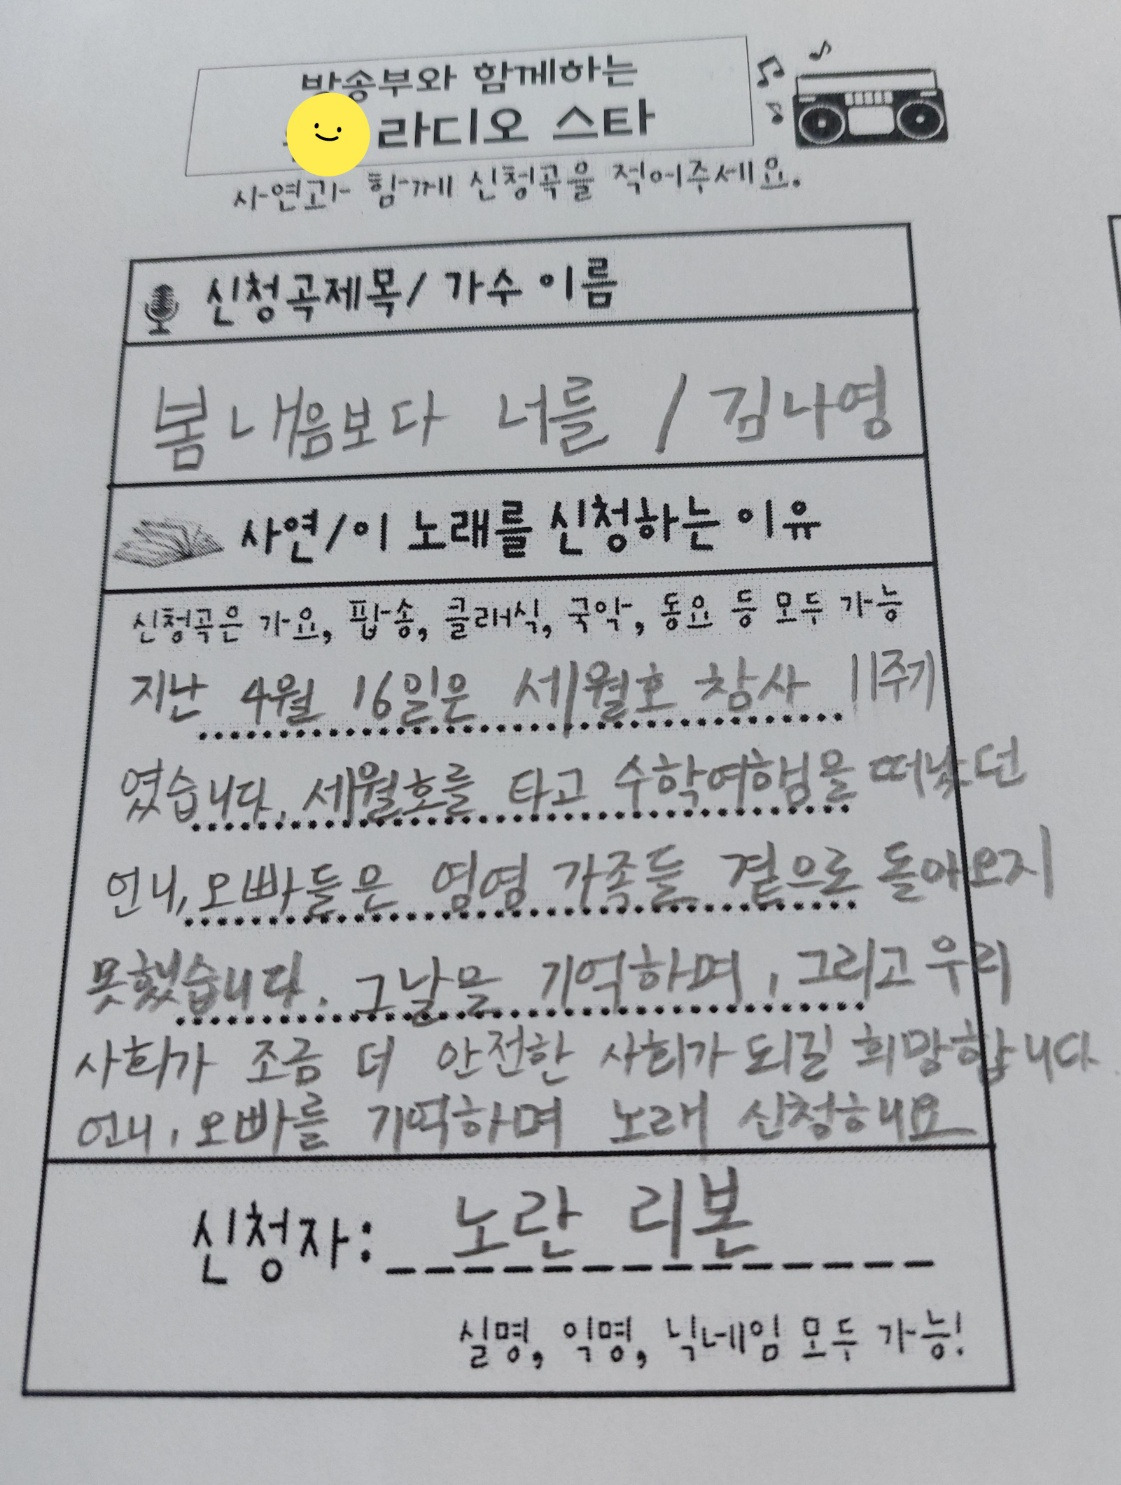 방송부와 함께하는
라디오 스타
사연과 함께 신청곡을 적어주세요.
신청곡제목/ 가수 이름
봄 내음보다 너를 / 김나영
사연/이 노래를 신청하는 이유
신청곡은 가요, 팝송, 클래식, 국악, 동요 등 모두 가능
지난 4월 16일은 세월호 참사 11주기
였습니다. 세월호를 타고 수학여행을 떠났던
언니, 오빠들은 영영 가족들 곁으로 돌아오지
못했습니다. 그날을 기억하며, 그리고 우리
사회가 조금 더 안전한 사회가 되길 희망합니다.
언니, 오빠를 기억하며 노래 신청해요
신청자: 노란 리본
실명, 익명, 닉네임 모두 가능!